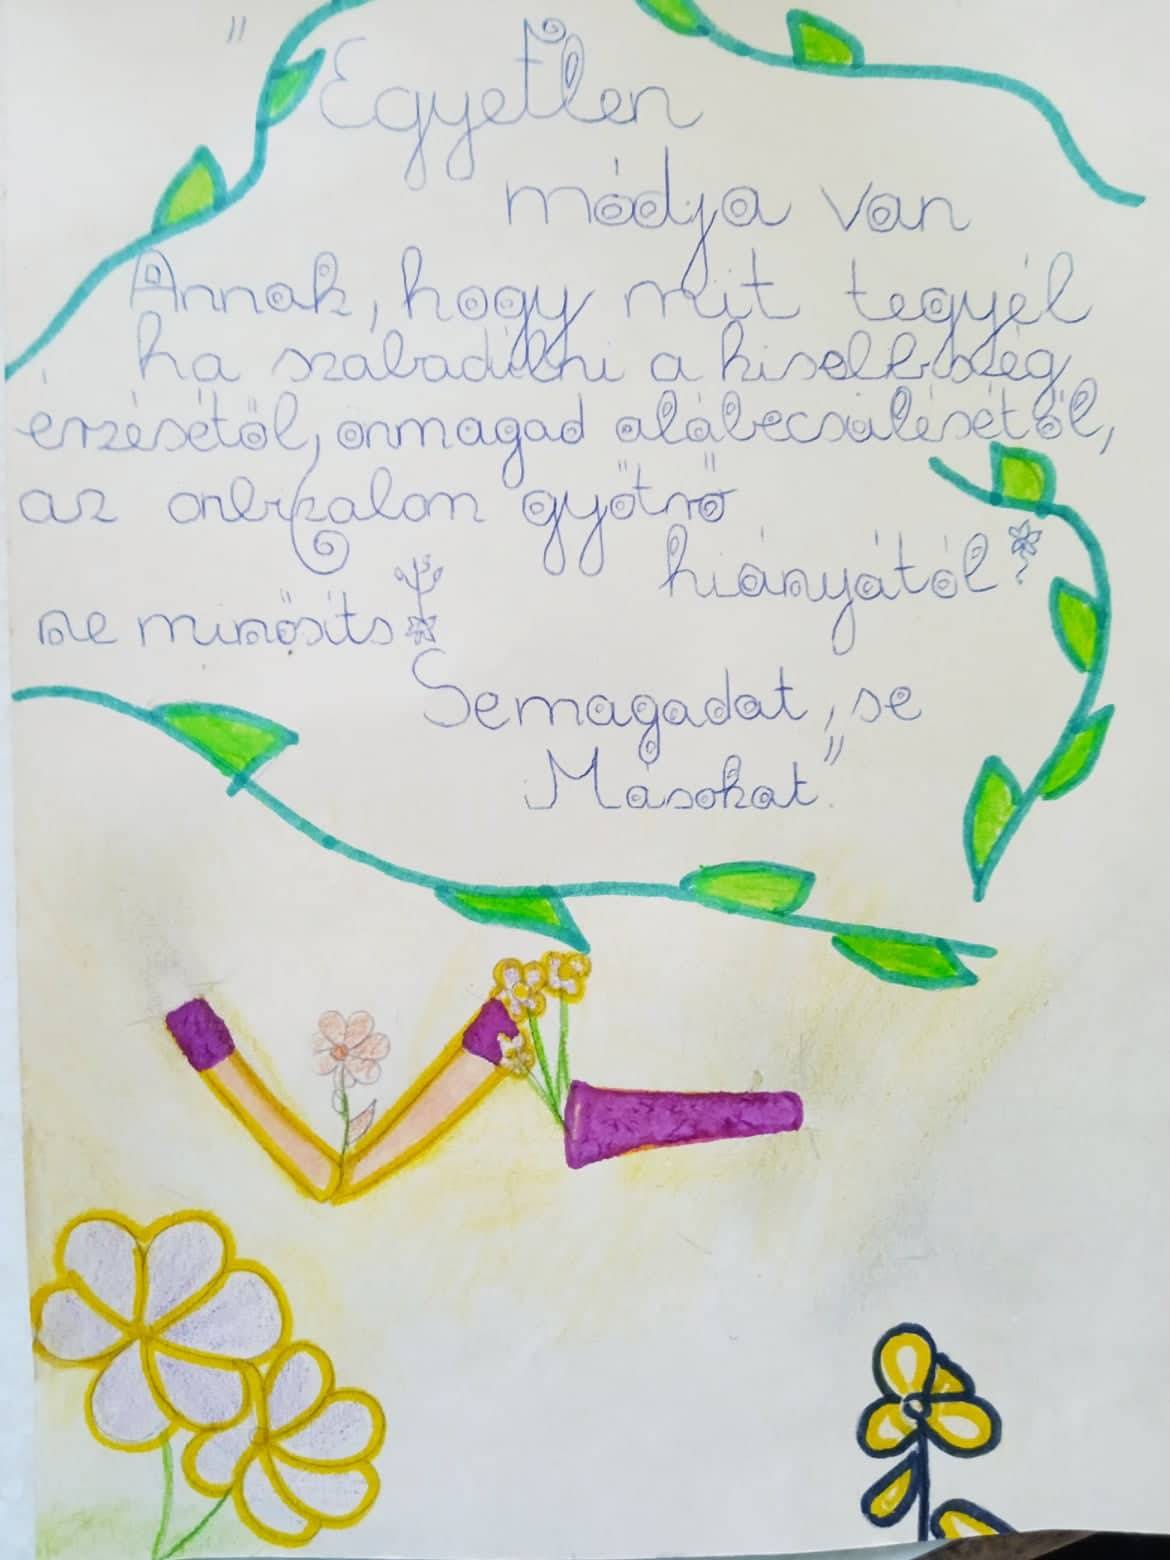 "Egyetlen
módja van
Annak, hogy mit tegyél
ha szabadulni a kisebbség
érzésétől, önmagad alábecsülésétől,
az önbizalom gyötrő
hiányától
ne minősíts
Semagadat, se
Másokat"